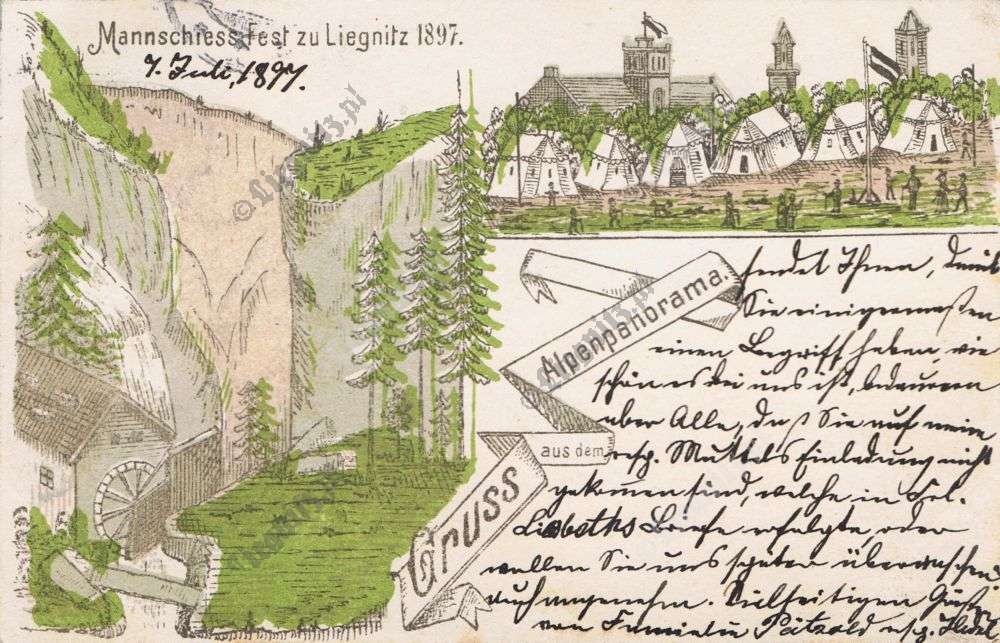 Mannschiess-Fest zu Liegnitz 1897.
7. Juli, 1897.
Gruss
aus dem
Alpenpanorama.
sendet Ihnen, damit
Sie einigermaßen
einen Begriff haben, wie
schön es bei uns ist, bedauern
aber Alle, daß Sie auf meine
resp. Muttels Einladung nicht
gekommen sind, welche in Frl.
Lisbeths Briefe erfolgte, oder
wollen Sie uns später überraschen
auch angenehm. Vielseitigen Gruß
von Familie
© Liegnitz.pl